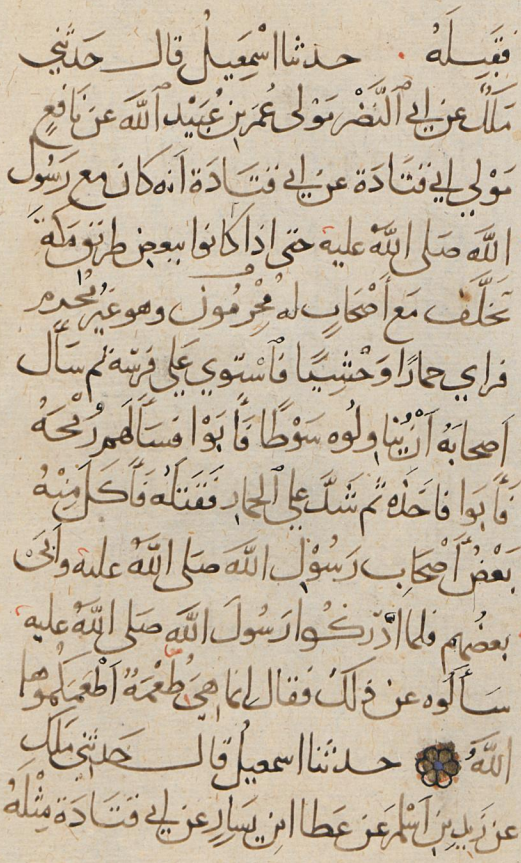 فَقَبِلَهُ حدثنا اسْمٰعِيلُ قال حَدثنِي
مَلِكٌ عن ابي النَّضْرِ مَوْلى عُمَر بن عُبَيْد اللَّه عن نَافعٍ
مَوْلي ابي قتَادَة عن ابي قتَادَة أنه كان مع رَسُول
اللَّه صَلى اللَّهُ عليه حتى اذا كانوا ببعض طريق مَكّةَ
تَخَلَّفَ مَع أصْحَابٍ لهُ مُحْرِمُونَ وهو غَيرُ مُحْرِم
فراي حمارًا وَحْشِيًا فَاسْتوي عَلي فَرسِه ثم سَأل
أصحابَهُ أنْ يُناولُوه سَوْطًا فَأبَوْا فسَألَهم رُمْحَهُ
فَأبَوا فاخَذه ثم شَدَّ علي الحمار فَقَتَلهُ فَأكَلَ مِنْهُ
بَعْضُ أصْحَابِ رَسُوْلِ اللَّه صَلى اللَّهُ عليه وأبَى
بعضُهم فلما ادْرَكُوا رَسُولَ اللَّه صَلى اللَّهُ عليه
سَألُوه عن ذلكَ فقال انما هِيَ طُعْمَةٌ اطْعَمَكُمُوها
اللَّهُ حدثنا اسمعيلُ قال حَدثنى مَلِكٌ
عن زَيدِ بن اسْلمَ عَن عَطا ابن يَسارٍ عن ابي قتَادَة مِثْلَهُ